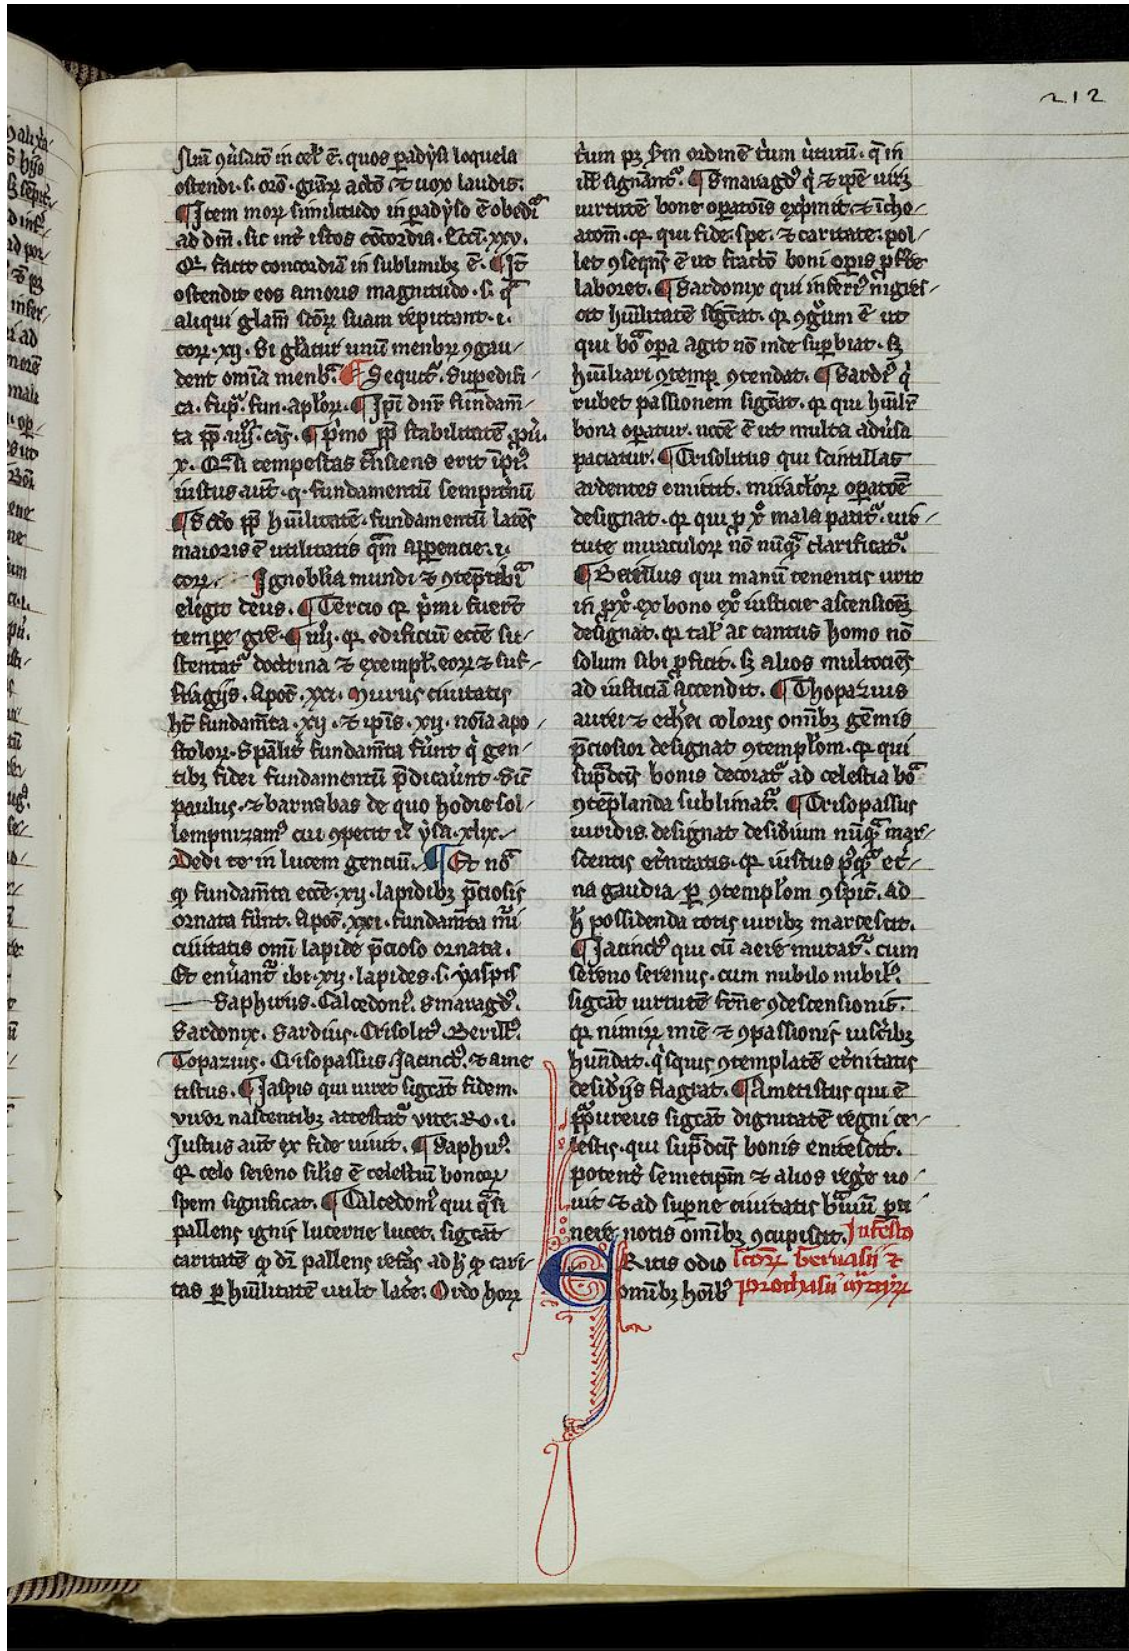 212
ostendi. s. orō. grāꝝ actō ⁊ uox laudis.
¶ Item moꝝ similitudo in padyso ē obediᵃ
ad dm̄. sic int̄ istos cōcordia. Ecci. xxv.
Qꝛ facit concordiā in sublimibꝫ ē. ¶ It̄
ostendit eos amoris magnitudo. s. qᵃ
aliqui glam̄ scōꝝ suam reputant. i.
coꝝ. xij. Si gl̄atur unū menbꝝ ꝯgau/
dent omīa menbᵃ. ¶ Sequit᷑. Supedifi/
ca. sup̄. fun. apl̄oꝝ. ¶ Ipī dn̄r fundam̄/
ta pp̄. iiij. cās. ¶ pⁱmo pp̄ stabilitatē. ꝓu̇.
x. Qᵃsi tempestas t̄nsiens erit īpiꝰ.
iustus aut̄. q. fundamentū sempitⁿū
¶ Scd̄o pp̄ huīlitatē. fundamentū latēs
maioris ē utilitatis qᵃm apparencie. i.
coꝝ. Ignobilia mundi ⁊ ꝯtēptibiᵃ
elegit deus. ¶ Tercio qꝛ pⁱmi fuert̄
tempe gr̄e. ¶ iiij. qꝛ edificiū ecc̄e su/
stentat᷑ doctrina ⁊ exempl̄. eoꝝ ⁊ suf/
fragijs. Apoc̄. xxi. Murus ciuitatis
hn̄s fundam̄ta. xij. ⁊ ip̄is. xij. noīa apo/
stoloꝝ. Spālit̄ fundam̄ta fūnt qⁱ gen/
tibꝫ fidei fundamentū p̄dicauūnt. Sic̄
paulus. ⁊ barnabas de quo hodie sol/
lempnizamꝰ cui ꝯpetit ił ysa. xlix.
Dedi te in lucem genciū. ¶ Et nōᵃ
ꝙ fundam̄ta ecc̄e. xij. lapidibꝫ p̄ciosis
ornata fūnt. Apoc̄. xxi. fundam̄ta mᵘi
ciuitatis omī lapide p̄cioso ornata.
Et enūant᷑ ibi. xij. lapides. s. yaspis
Saphirus. Calcedonꝰ. Smaragdꝰ.
Sardonix. Sardius. Crisolitꝰ. Berillꝰ.
Topazius. Crisopassus. Jacinctꝰ. ⁊ ame
tistus. ¶ Jaspis qui uiret sigcāt fidem.
viror nascentibꝫ attestat᷑ vite. Ro. i.
Justus aut̄ ex fide uiuit. ¶ Saphirꝰ.
Qꝛ celo sereno silis ē celestiū bonoꝝ
spem significat. ¶ Calcedonꝰ qui qᵃsi
pallens ignis lucerne lucet. sigcāt
caritatē ꝙ dr̄ pallens ad h̄ ꝙ cari/
tas ꝑ huīlitatē uult latē. Ordo hoꝝ
tⁱum pꝫ sm̄ ordinē tⁱum uⁱtutū. qᵉ in
ill̄ signānt᷑. ¶ Smaragdꝰ qⁱ ⁊ ip̄e uirꝫ
uirtutē bone opatōis expⁱmit ⁊ īcho/
atōm. qꝛ qui fide. spe. ⁊ caritate. pol/
let ꝯseqn̄s ē ut boni opis
laboret. ¶ Sardonix qui inferiꝰ nigres/
cit huīlitatē sigcāt. qꝛ ꝯgᵘum ē ut
qui bōᵃ opa agit nō inde supbiat. sꝫ
huīliari ꝯtendat. ¶ Sardiꝰ qⁱ
rubet passionem sigcāt. qꝛ qui huīlr̄
bona opatur. necc̄ ē ut multa aduⁱsa
paciatur. ¶ Crisolitus qui scintillas
ardentes emittit. mirac̄loꝝ opatōē
designat. qꝛ qui ꝓ xº mala patit᷑. uir/
tute miraculoꝝ nō nūqᵃ clarificat᷑.
¶ Berillus qui manū tenentis urit
in ex bono iusticie ascensionē
designat. qꝛ tal̄ ac tantus homo nō
solum sibi ꝓficit. sꝫ alios multociēs
ad iusticiā accendit. ¶ Thopazius
aurei ⁊ ethēi coloris omibꝫ gemīs
p̄ciosior designat ꝯtempl̄om. qꝛ qui
supᵃdcīs bonis decorat᷑ ad celestia bōᵃ
ꝯtēplanda sublimat᷑. ¶ Crisopassus
uiridis. designat desidⁱium nūqᵃ mar/
scentis et̄nitatis. qꝛ iustus et̄/
na gaudia ꝑ ꝯtempl̄om ꝯspic̄. ad
h̄ possidenda totis uiribꝫ marcescit.
¶ Jacinctꝰ qui cū aere mutat᷑. cum
sereno serenus. cum nubilo nubilꝰ.
sigcāt uirtutē ꝯdescensionis.
qꝛ nimiꝝ mīe ⁊ ꝯpassionis uiscⁱibꝫ
hūndat. qⁱsquis ꝯtemplatē et̄nitatis
desidⁱijs flagrat. ¶ Ametistus qui ē
purpureus sigcāt dignitatē regni ce/
lestis. qui supᵃdcīs bonis enitescit.
potent̄ semetipm̄ ⁊ alios regⁱe no/
uit ⁊ ad supne ciuitatis brauiū pti
nere notis omibꝫ ꝯcupiscit. In festo
Eritis odio scōꝝ Geruasii ⁊
omibꝫ hōibꝰ Prothasii mⁱtyrꝝ